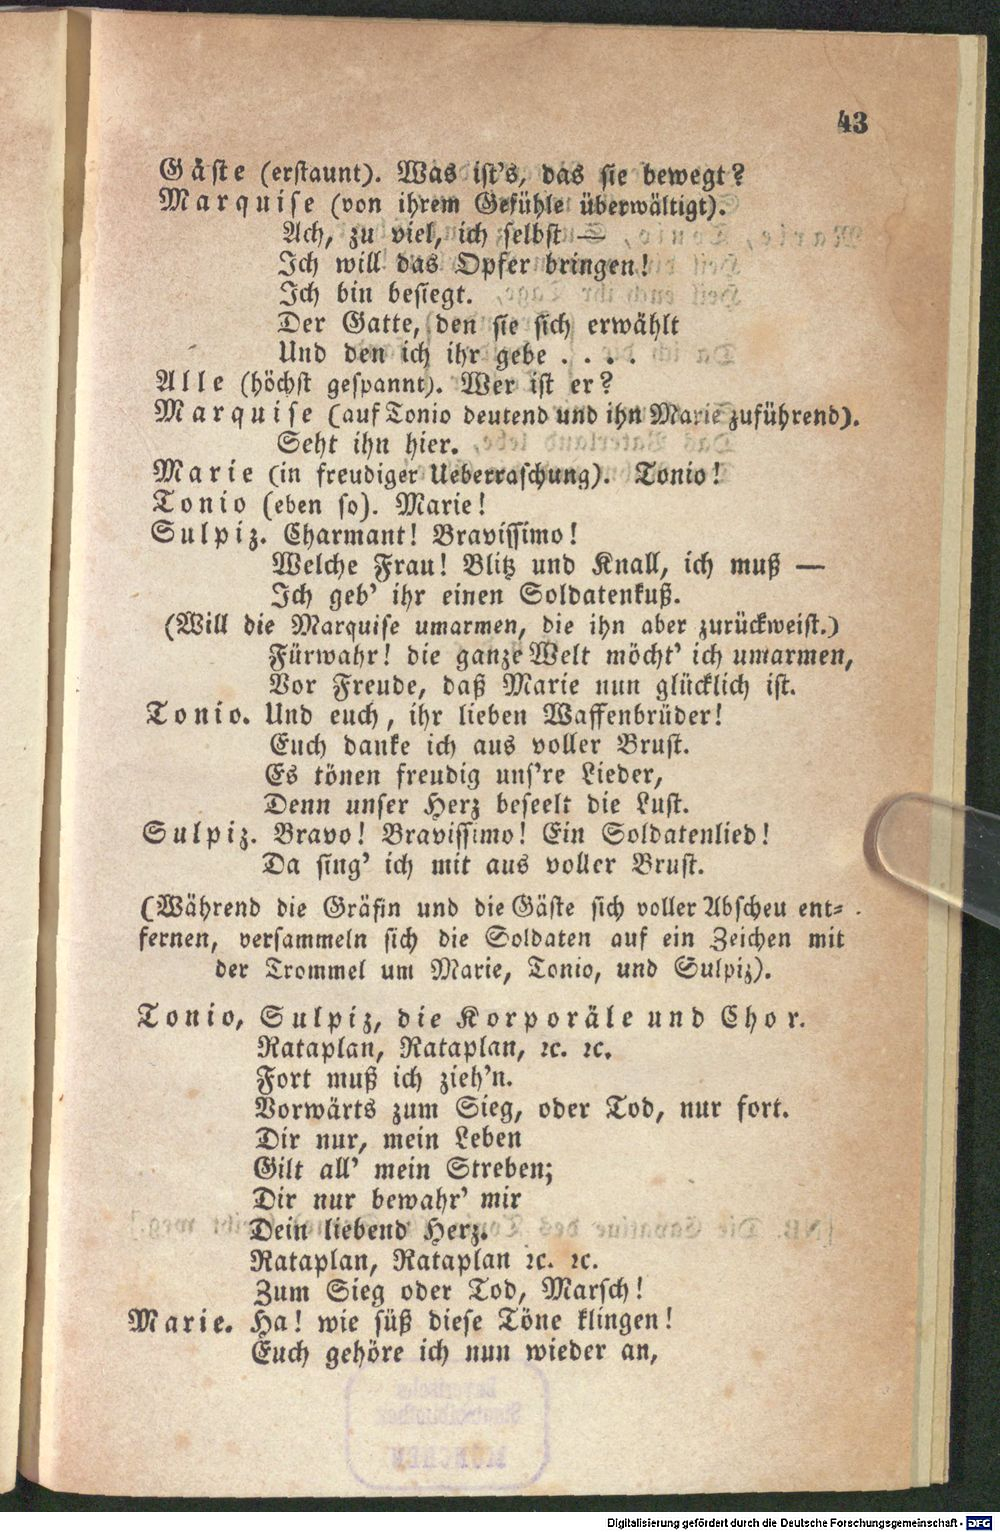 43
Gäste (erstaunt). Was ist's, das sie bewegt?
Marquise (von ihrem Gefühle überwältigt).
Ach, zu viel, ich selbst —
Ich will das Opfer bringen!
Ich bin besiegt.
Der Gatte, den sie sich erwählt
Und den ich ihr gebe . . . .
Alle (höchst gespannt). Wer ist er?
Marquise (auf Tonio deutend und ihn Marie zuführend).
Seht ihn hier.
Marie (in freudiger Ueberraschung). Tonio!
Tonio (eben so). Marie!
Sulpiz. Charmant! Bravissimo!
Welche Frau! Blitz und Knall, ich muß —
Ich geb' ihr einen Soldatenkuß.
(Will die Marquise umarmen, die ihn aber zurückweist.)
Fürwahr! die ganze Welt möcht' ich umarmen,
Vor Freude, daß Marie nun glücklich ist.
Tonio. Und euch, ihr lieben Waffenbrüder!
Euch danke ich aus voller Brust.
Es tönen freudig uns're Lieder,
Denn unser Herz beseelt die Lust.
Sulpiz. Bravo! Bravissimo! Ein Soldatenlied!
Da sing' ich mit aus voller Brust.
(Während die Gräfin und die Gäste sich voller Abscheu ent-
fernen, versammeln sich die Soldaten auf ein Zeichen mit
der Trommel um Marie, Tonio, und Sulpiz).
Tonio, Sulpiz, die Korporäle und Chor.
Rataplan, Rataplan, ꝛc. ꝛc.
Fort muß ich zieh'n.
Vorwärts zum Sieg, oder Tod, nur fort.
Dir nur, mein Leben
Gilt all' mein Streben;
Dir nur bewahr' mir
Dein liebend Herz.
Rataplan, Rataplan ꝛc. ꝛc.
Zum Sieg oder Tod, Marsch!
Marie. Ha! wie süß diese Töne klingen!
Euch gehöre ich nun wieder an,
Digitalisierung gefördert durch die Deutsche Forschungsgemeinschaft - DFG